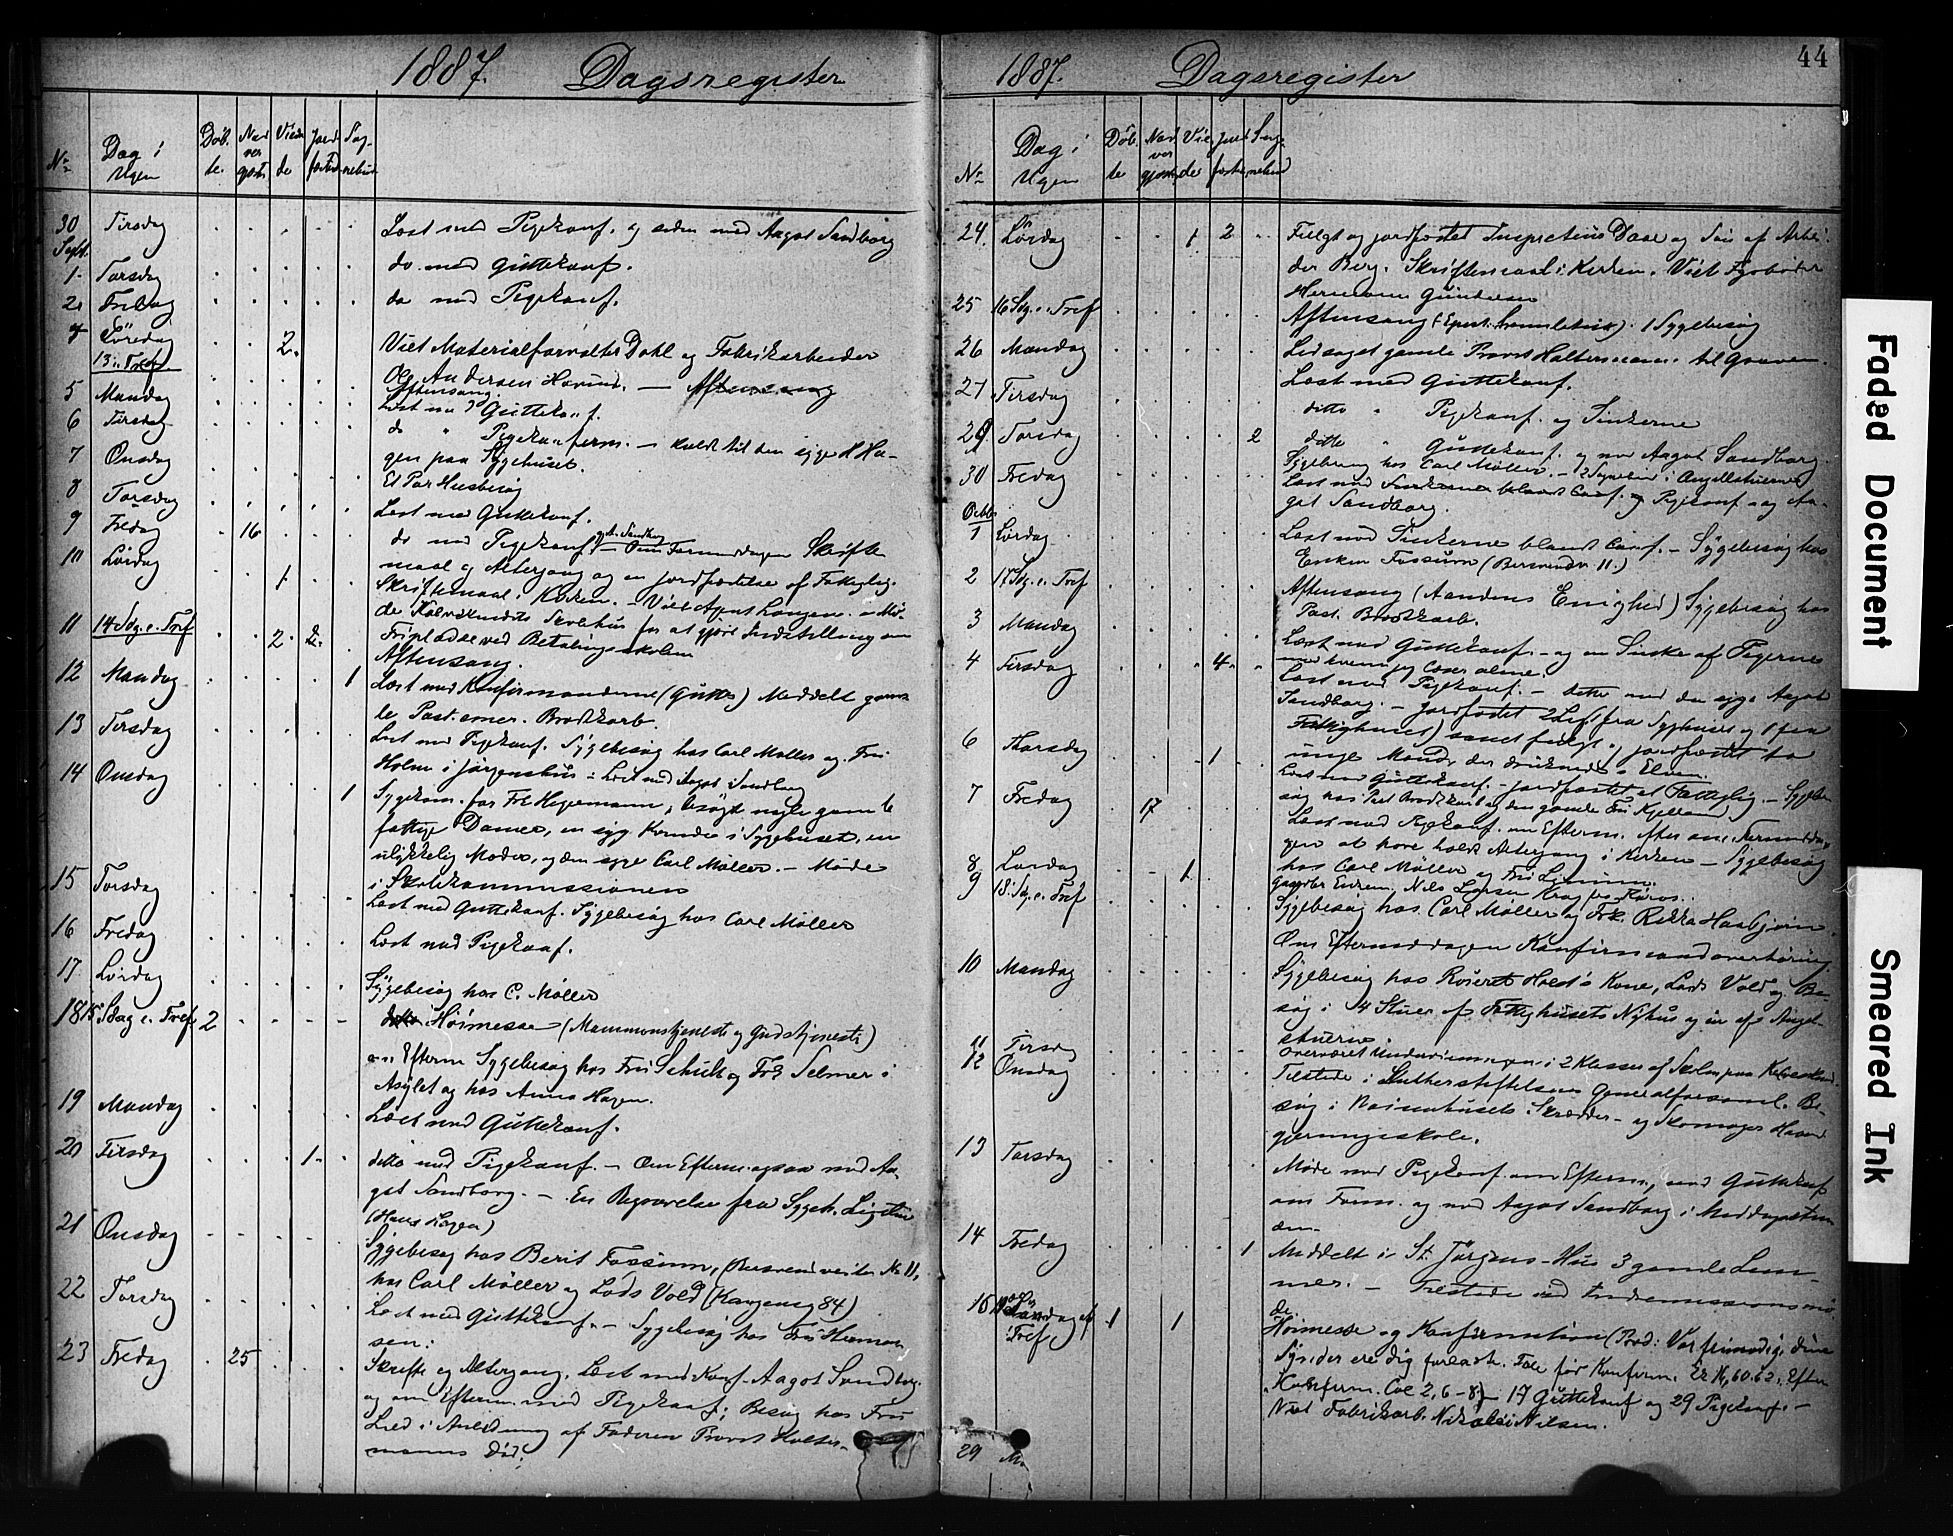 44
1887. Dagsregister
Nr. Dag i Ugen Döbte. Nadvergjæster Viede Jordfæstede Sognebud
30 Tirsdag Læst med Pigekonf. og siden med Aagot Sandborg
Sept.
1. Torsdag do. med Guttekonf.
2. Fredag do med Pigekonf.
Löredag 2. Viet Materialforvalter Dahl og Fabrikarbeider
13. e. Tref Ole Andersen Aftensang
Aftensang.
5 Mandag Læst med Guttekonf.
6 Tirsdag do " Pigekonferm. — kaldt til den syge H Ha-
7 Onsdag gen paa Sygehuset.
Et Par Husbesög
8 Torsdag Læst med Guttekonf.
9 Fredag 16 do med Pigekonf — Om Formiddagen Skrifte
10 Lördag 1 maal og Altergang og en jordfæstelse af Fattiglig.
Skriftemaal i Kirken. — Viet Agent Langene
de Kalvskindets Skolehus for at gjöre Indstilling om
11 14 Sdg. e. Tref 2 2. Fripladse ved Betalingsskolen
Aftensang.
12 Mandag 1 Læst med Konfirmanderne (Gutter) Meddelt gam-
le Past. emer. Brodtkorb.
13 Tirsdag Læst med Pigekonf. Sygebesög hos Carl Möller og Fru
Holm i Jörgenshus — Læst med Aagot Sandborg
14 Onsdag 1 Sygekom. for Frk Hegemann; besögt nogle gamle
fattige Damer, en syg Kvinde i Sygehuset, en
ulykkelig Moder, og den syge Carl Möller. — Möde
i Skolekommissionen
15 Torsdag Læst med Guttekonf. Sygebesög hos Carl Möller
16 Fredag Læst med Pigekonf.
17 Lördag Sygebesög hos C. Möller
18 15 Sdag e. Tref 2 Höimesse (Mammonstjeneste og Gudstjeneste)
om Efterm Sygebesög hos Fru Schult og Frk Selmer i
Asylet og hos Anna Hagen.
19 Mandag Læst med Guttekonf.
20 Tirsdag 1. ditto med Pigekonf. — Om Efterm. ogsaa med Aa-
got Sandborg. — En Begravelse fra Sygeh. Ligstue
(Hans Hagen)
21 Onsdag Sygebesög hos Berit Fossum, No 11,
hos Carl Möller og Lods Vold (Kongensg 84)
22 Torsdag Læst med Guttekonf. — Sygebesög hos Fru Herman
sen.
23 Fredag 25 Skrifte og Altergang. Læst med Konf. Aagot Sandborg
og om Efterm. med Pigekonf; Besög hos Fru
Lied i Anledning af Faderen Provst Holter-
manns Död.
1887. Dagsregister
Nr. Dag i Ugen Döbte Nadvergjæster Viede Jordfæstede Sognebud
24. Lördag 1 2 Fulgt og jordfæstet Inspecteur Daae og Sön af Arbei-
der Berg. Skriftemaal i Kirken. Viet Fyrböter
Hermann Gundersen
25 16 Sdg. e. Tref Aftensang 1 Sygebesög
26 Mandag Ledsaget gamle Provst Holtermann til Graven.
27 Tirsdag Læst med Guttekonf.
ditto " Pigekonf. og Sinkerne
29 Torsdag 2 ditto " Guttekonf. og med Aagot Sandborg.
30 Fredag Sygebesög hos Carl Möller. —
Læst med Sinkerne blandt Conf. og Pigekonf. og Aa-
got Sandborg.
Octbr
1 Lördag Læst med Sinkerne blandt Conf. — Sygebesög hos
Enken Fossum
2 17 Sdg. e. Tref Aftensang (Aandens Enighed) Sygebesög hos
Past. Brodtkorb.
3 Mandag Læst med Guttekonf. — og en Sinke af Pigerne
4 Tirsdag 4. Læst med Pigekonf. — ditto med den syge Aagot
Sandborg. — Jordfæstet 2 Lig (fra Sygehuset og 1 fra
Fattighuset) samt fulgt og jordfæstet to
unge Mænd, der druknede i Elven.
6 Thorsdag 1 Læst med Guttekonf. — jordfæstet et Fattiglig. — Sygebe
sög hos Past Brodtkorb og den gamle Fru Kjelland
7 Fredag 17 Læst med Pigekonf. om Efterm. efter om Formidda-
gen at have holdt Altergang i Kirken — Sygebesög
hos Carl Möller og Fru
8 Lördag 1 Enkem. Nils Larsen Krag fra Röros.
9 18. Sdg. e. Tref Sygebesög hos Carl Möller og Frk. Rikka Hasbjörn.
Om Eftermiddagen Konfirmandoverhöring
10 Mandag Sygebesög hos Holst's Kone, Lods Vold og Be-
sög i 4 Stuer af Fattighusets Nyhus og en af Angel-
stuerne.
11 Tirsdag Overværet Undervisningen i 2 Klasser af Skolen paa
12 Onsdag Tilstede i Lutherstiftelsens Generalforsaml. Be-
sög i Waisenhusets Skrædder- og Skomager Haand
gjerningsskole.
13 Torsdag Möde med Pigekonf. om Efterm., med Guttekonf
om Form. og med Aagot Sandborg i Middagstim
en.
14 Fredag 1 Meddelt i St. Jörgens Hus 3 gamle Lem-
mer. — Tilstede ved
de.
16 Söndag ef Tref 1 1 Höimesse og Konfirmation (Præd: Vær frimodig, dine
Synder ere dig forladte. Tale för Konfirm. Es 60. 62. Efter
Konfirm. Col 2, 6–8) — 17 Guttekonf og 29 Pigekonf. —
Viet Fabrikarb. Nikolai Nilsen.
29 Ma
Faded Document
Smeared Ink